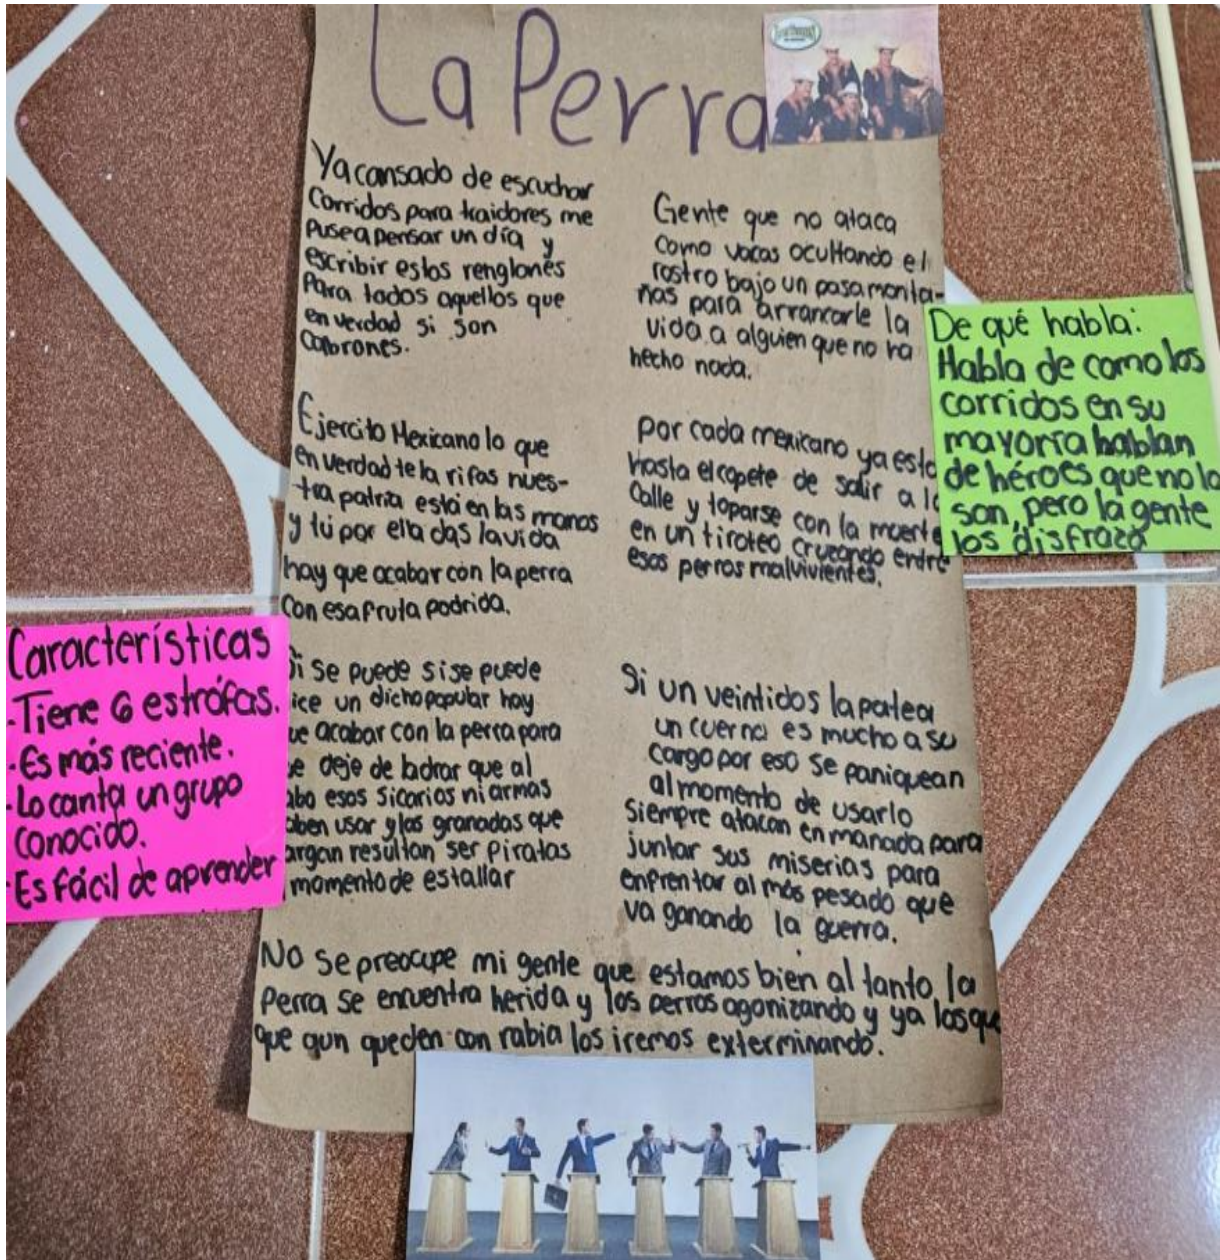 La Perra
Ya cansado de escuchar
Corridos para traidores me
Puse a pensar un día y
escribir estos renglones
Para todos aquellos que
en verdad si son
Cabrones.
Ejercito Mexicano lo que
en verdad te la rifas nues-
tra patria está en las manos
y tú por ella das la vida
hay que acabar con la perra
Con esa fruta podrida.
Si se puede si se puede
ice un dicho popular hay
ue acabar con la perra para
e deje de ladrar que al
abo esos sicarios ni armas
aben usar y las granadas que
argan resultan ser Piratas
momento de estallar
Gente que no ataca
como vacas ocultando el
rostro bajo un pasamonta-
ñas para arrancarle la
vida a alguien que no ha
hecho nada.
por cada mexicano ya esta
hasta el copete de salir a la
Calle y toparse con la muerte
en un tiroteo cruzando entre
esos perros malvivientes.
Si un veintidos la patea
un cuerno es mucho a su
cargo por eso se paniquean
al momento de usarlo
Siempre atacan en manada para
juntar sus miserias para
enfrentar al más pesado que
va ganando la guerra.
No se preocupe mi gente que estamos bien al tanto la
Perra se encuentra herida y los perros agonizando y ya los que
que aun queden con rabia los iremos exterminando.
De qué habla:
Habla de como los
corridos en su
mayoría hablan
de héroes que no lo
son, pero la gente
los disfraza
Características
-Tiene 6 estrófas.
-Es más reciente.
-Lo canta un grupo
conocido.
-Es fácil de aprender